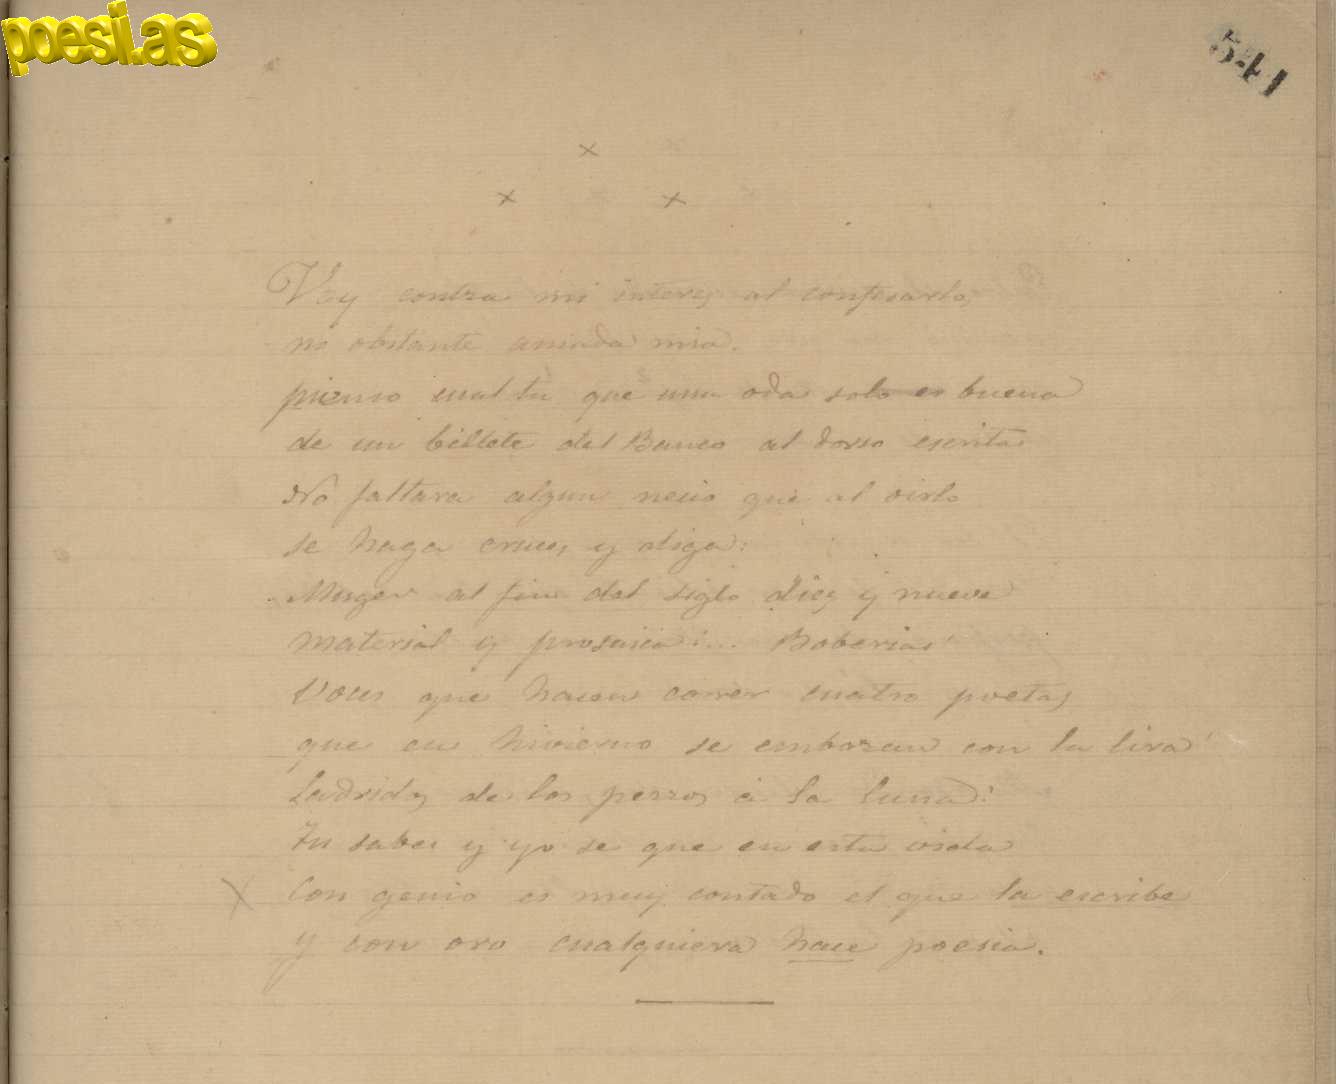 poesi.as
541
x
x x
Voy contra mi interes al confesarlo,
no obstante amada mia.
pienso cual tu que una oda solo es buena
de un billete del Banco al dorso escrita
No faltara algun necio que al oirlo
se haga cruces y diga:
Muger al fin del siglo diez y nueve
material y prosaica!... Boberias!
Voces que hacen correr cuatro poetas
que en hivierno se embozan con la lira!
Ladridos de los perros á la luna!
Tu sabes y yo se que en esta vida
X Con genio es muy contado el que la escribe
y con oro cualquiera hace poesia.